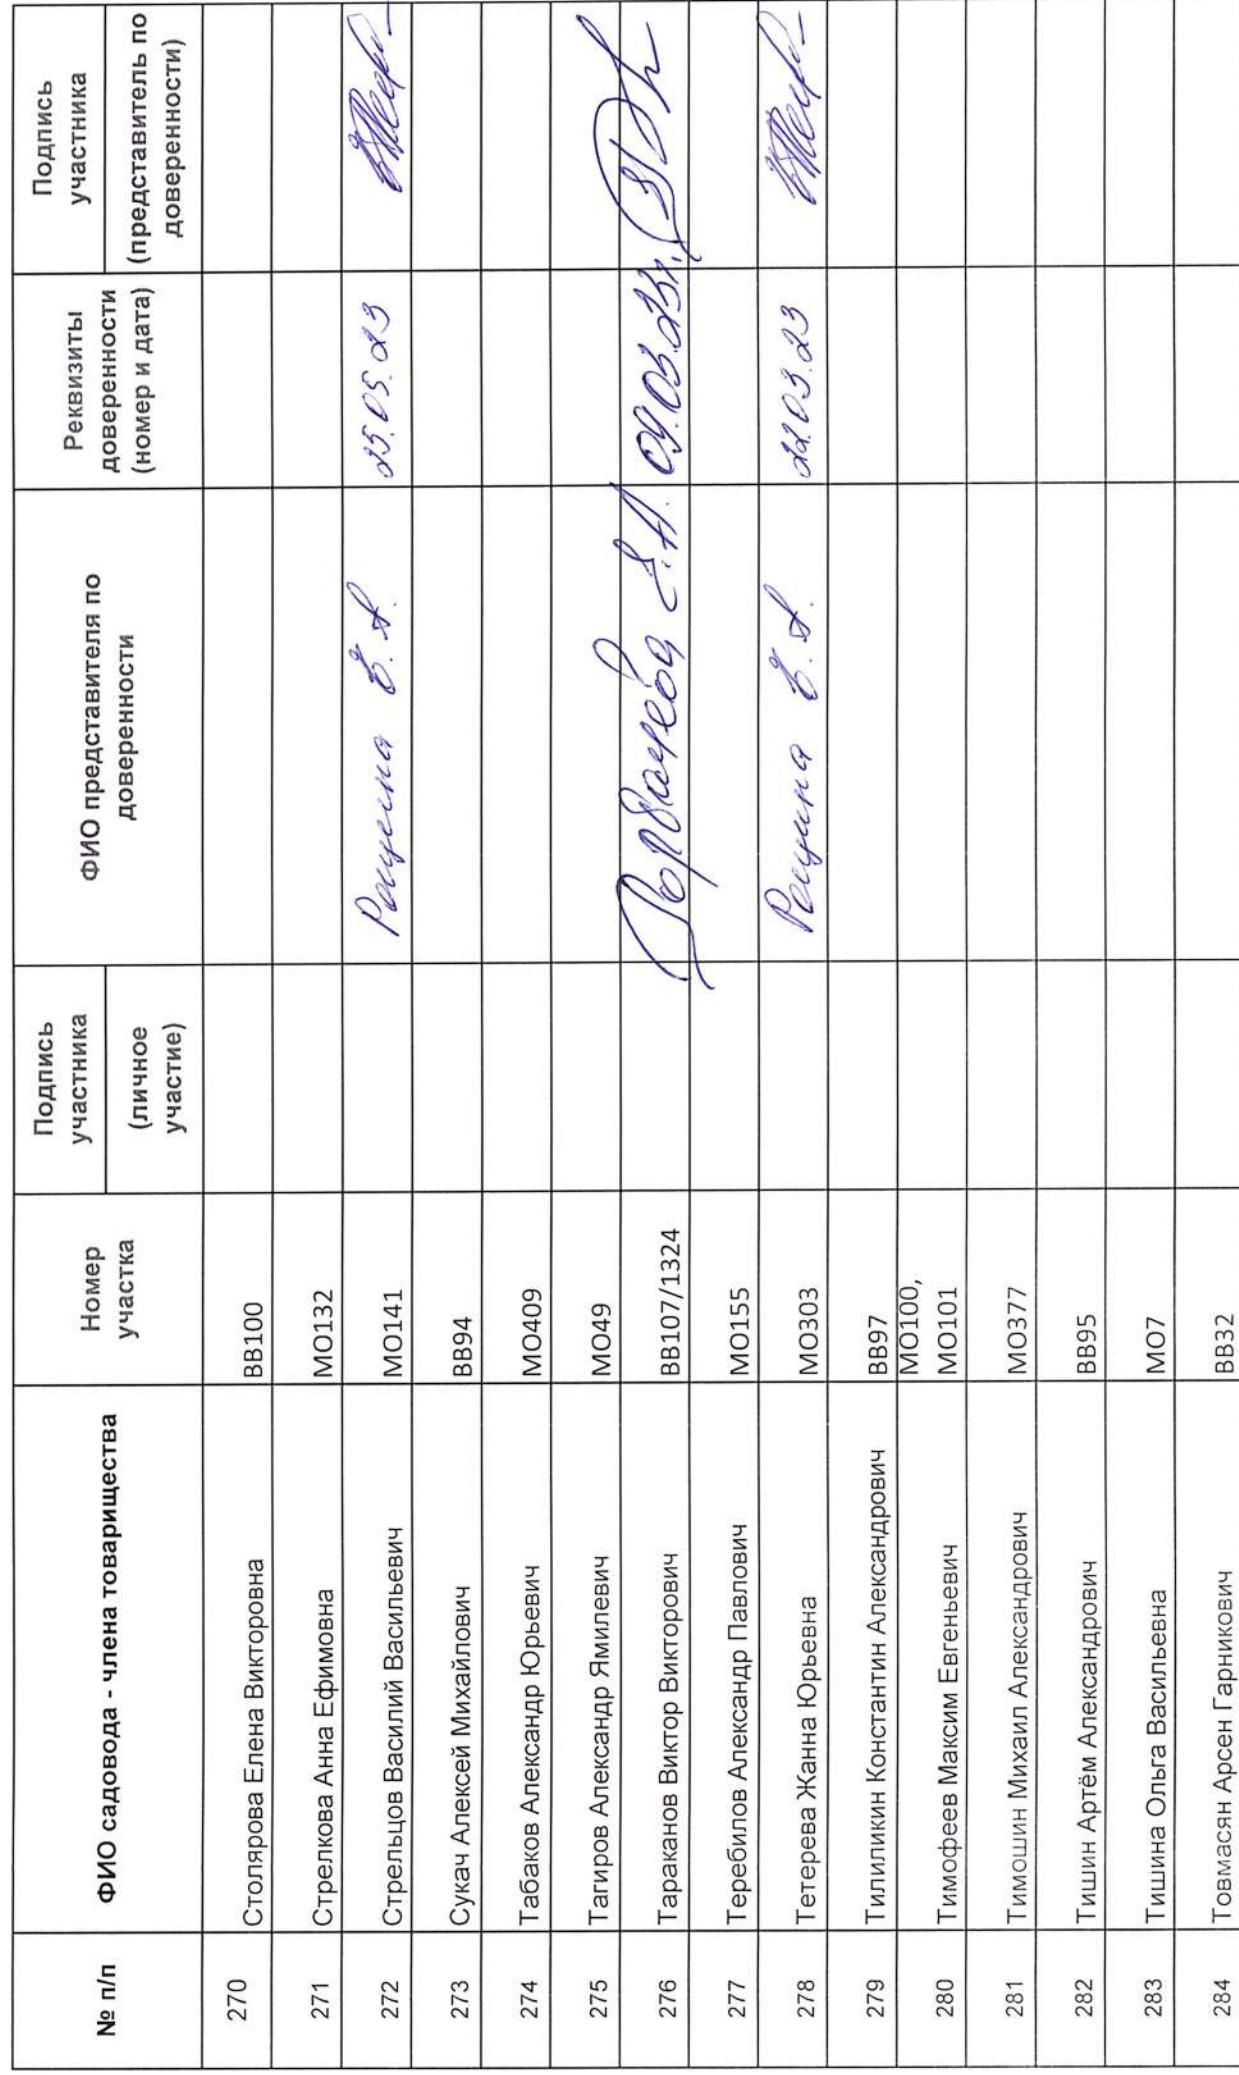 № п/п ФИО садовода - члена товарищества Номер участка Подпись участника (личное участие) ФИО представителя по доверенности Реквизиты доверенности (номер и дата) Подпись участника (представитель по доверенности)
270 Столярова Елена Викторовна ВВ100
271 Стрелкова Анна Ефимовна МО132
272 Стрельцов Василий Васильевич МО141 Рощина Е. А. 25.05.23
273 Сукач Алексей Михайлович ВВ94
274 Табаков Александр Юрьевич МО409
275 Тагиров Александр Ямилевич МО49
276 Тараканов Виктор Викторович ВВ107/1324 Горбачева Е.А. 09.03.23г.
277 Теребилов Александр Павлович МО155
278 Тетерева Жанна Юрьевна МО303 Рощина Е. А. 22.03.23
279 Тилиликин Константин Александрович ВВ97
280 Тимофеев Максим Евгеньевич МО100, МО101
281 Тимошин Михаил Александрович МО377
282 Тишин Артём Александрович ВВ95
283 Тишина Ольга Васильевна МО7
284 Товмасян Арсен Гарникович ВВ32